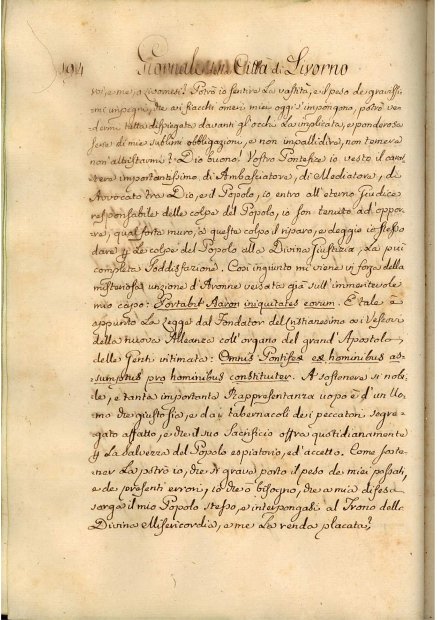 194 Giornale della Città di Livorno
voi, e me, o Livornesi? Potrò io sentire la vastità, e il peso de gravissi
mi impegni, che ai fiacchi omeri miei oggi s'impongono, potrò ve
dermi tutta dispiegata davanti gl'occhi la implicata, e ponderosa
serie di mie sublimi obbligazioni, e non impallidire, non temere
non attristarmi? Dio buono! Vostro Pontefice io vesto il carat
tere importantissimo di Ambasciatore, di Mediatore, di
Avvocato tra Dio, e il Popolo, io entro all'eterno Giudice
responsabile delle colpe del Popolo, io son tenuto ad oppor
re, qual forte muro, a queste colpe il riparo, e deggio io stesso
dare per le colpe del Popolo alla Divina Giustizia, la più
completa soddisfazione. Così ingiunto mi viene in forza della
misteriosa unzione d'Aronne versata già sull'immeritevole
mio capo: Portabit Aaron iniquitates eorum. E tale è
appunto la Legge dal Fondator del Cristianesimo ai Vescovi
della nuova Alleanza coll'organo del grand'Apostolo
delle Genti intimata: Omnis Pontifex ex hominibus as-
sumptus pro hominibus constituitur. A sostenere sì nobi
le, e tanta importante Rappresentanza uopo è d'un Uo
mo che giusto sia, e da i tabernacoli dei peccatori segre
gato affatto, e che il suo Sacrificio offra quotidianamente
per la salvezza del Popolo espiatorio, ed accetto. Come soste
ner la potrò io, che sì grave porto il peso de miei passati,
e de presenti errori, io che ò bisogno, che a mia difesa
sorga il mio Popolo stesso, e interpongasi al Trono della
Divina Misericordia, e me la renda placata?